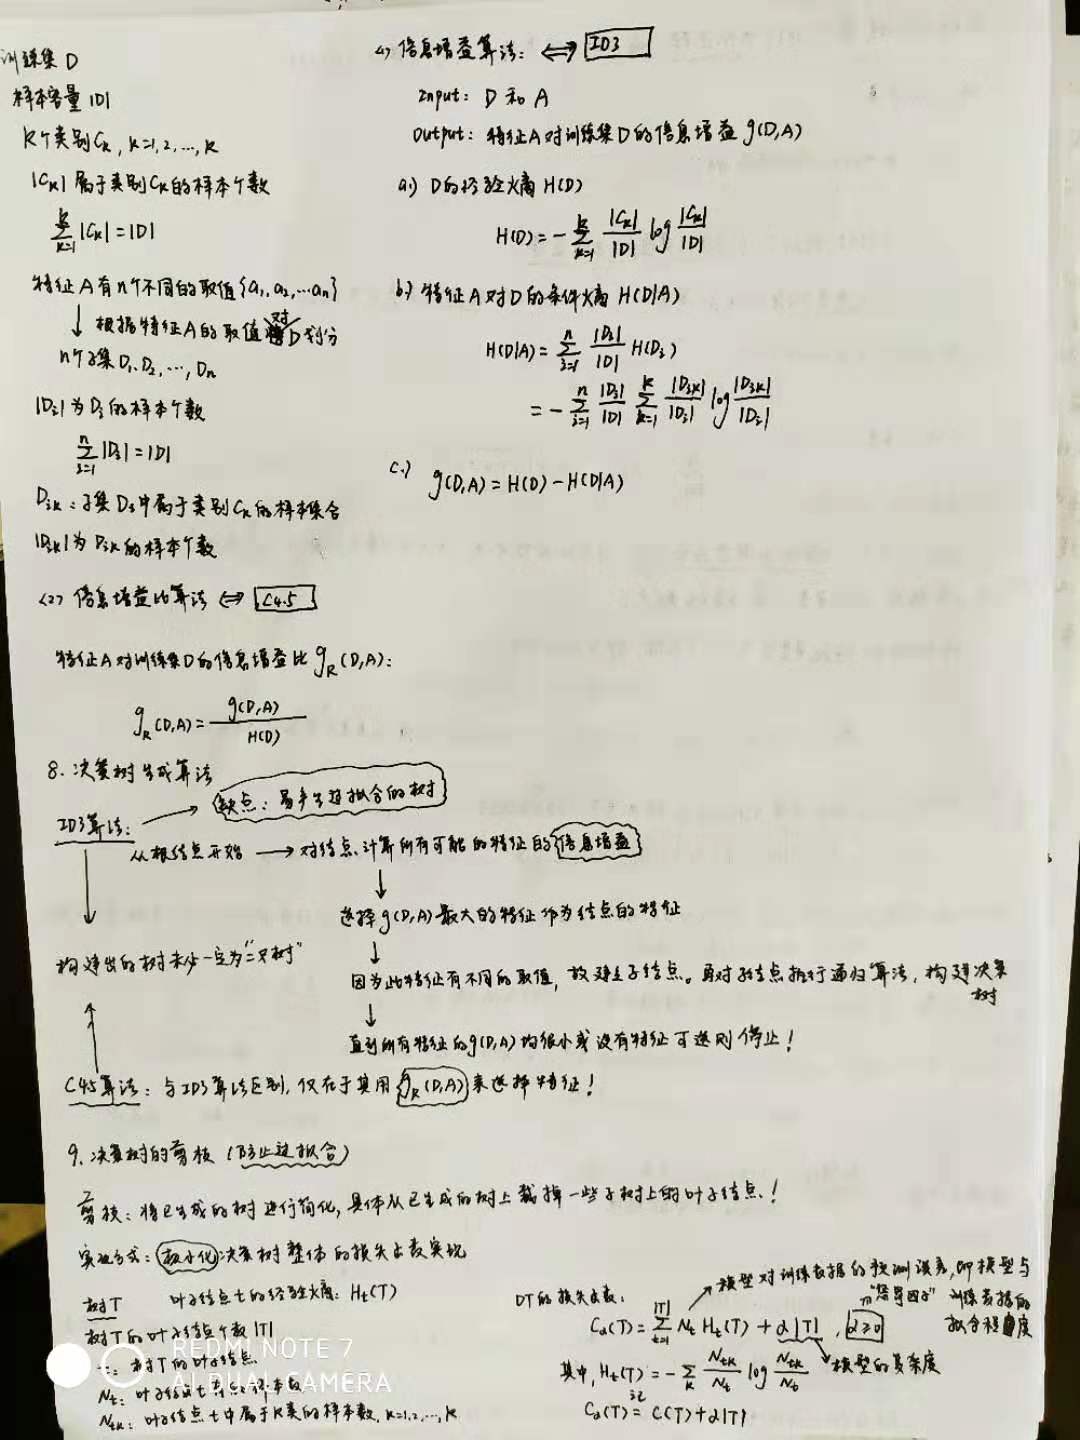 训练集 D
样本容量 |D|
K个类别 Ck, k=1,2,...,K
|Ck| 属于类别Ck的样本个数
∑_{k=1}^{K} |Ck| = |D|
特征A有n个不同的取值{a₁, a₂, ...an}
↓ 根据特征A的取值对D划分
n个子集D₁, D₂, ..., Dn
|Di|为Di的样本个数
∑_{i=1}^{n} |Di| = |D|
Dik：子集Di中属于类别Ck的样本集合
|Dik|为Dik的样本个数
<1> 信息增益算法： ⟺ ID3
Input： D 和 A
Output：特征A对训练集D的信息增益 g(D,A)
a.) D的经验熵 H(D)
H(D) = -∑_{k=1}^{K} |Ck|/|D| log |Ck|/|D|
b.) 特征A对D的条件熵 H(D|A)
H(D|A) = ∑_{i=1}^{n} |Di|/|D| H(Di)
= -∑_{i=1}^{n} |Di|/|D| ∑_{k=1}^{K} |Dik|/|Di| log |Dik|/|Di|
c.) g(D,A) = H(D) - H(D|A)
<2> 信息增益比算法 ⟺ C4.5
特征A对训练集D的信息增益比 g_R(D,A)：
g_R(D,A) = g(D,A)/H(D)
8. 决策树生成算法
ID3算法： → 缺点：易产生过拟合的树
从根结点开始 → 对结点计算所有可能的特征的信息增益
↓
选择g(D,A)最大的特征作为结点的特征
↓
因为此特征有不同的取值，故建立子结点。再对子结点执行递归算法，构建决策树
↓
直到所有特征的g(D,A)均很小或没有特征可选则停止！
构建出的树未必一定为"二叉树"
C4.5算法：与ID3算法区别，仅在于其用 g_R(D,A) 来选择特征！
9. 决策树的剪枝（防止过拟合）
剪枝：将已生成的树进行简化，具体从已生成的树上裁掉一些子树上的叶子结点！
实现方式：极小化决策树整体的损失函数实现
树T 叶子结点t的经验熵：Ht(T)
树T的叶子结点个数|T|
t：树T的叶子结点
Nt：叶子结点t有 样本数
Ntk：叶子结点t中属于K类的样本数, k=1,2,...,K
DT的损失函数：
→ 模型对训练数据的预测误差，即模型与训练数据的拟合程度
"惩罚因子"
Cα(T) = ∑_{t=1}^{|T|} Nt Ht(T) + α|T|, α≥0
→ 模型的复杂度
其中, Ht(T) = -∑_k Ntk/Nt log Ntk/Nt
记
Cα(T) = C(T) + α|T|
REDMI NOTE 7
AI DUAL CAMERA